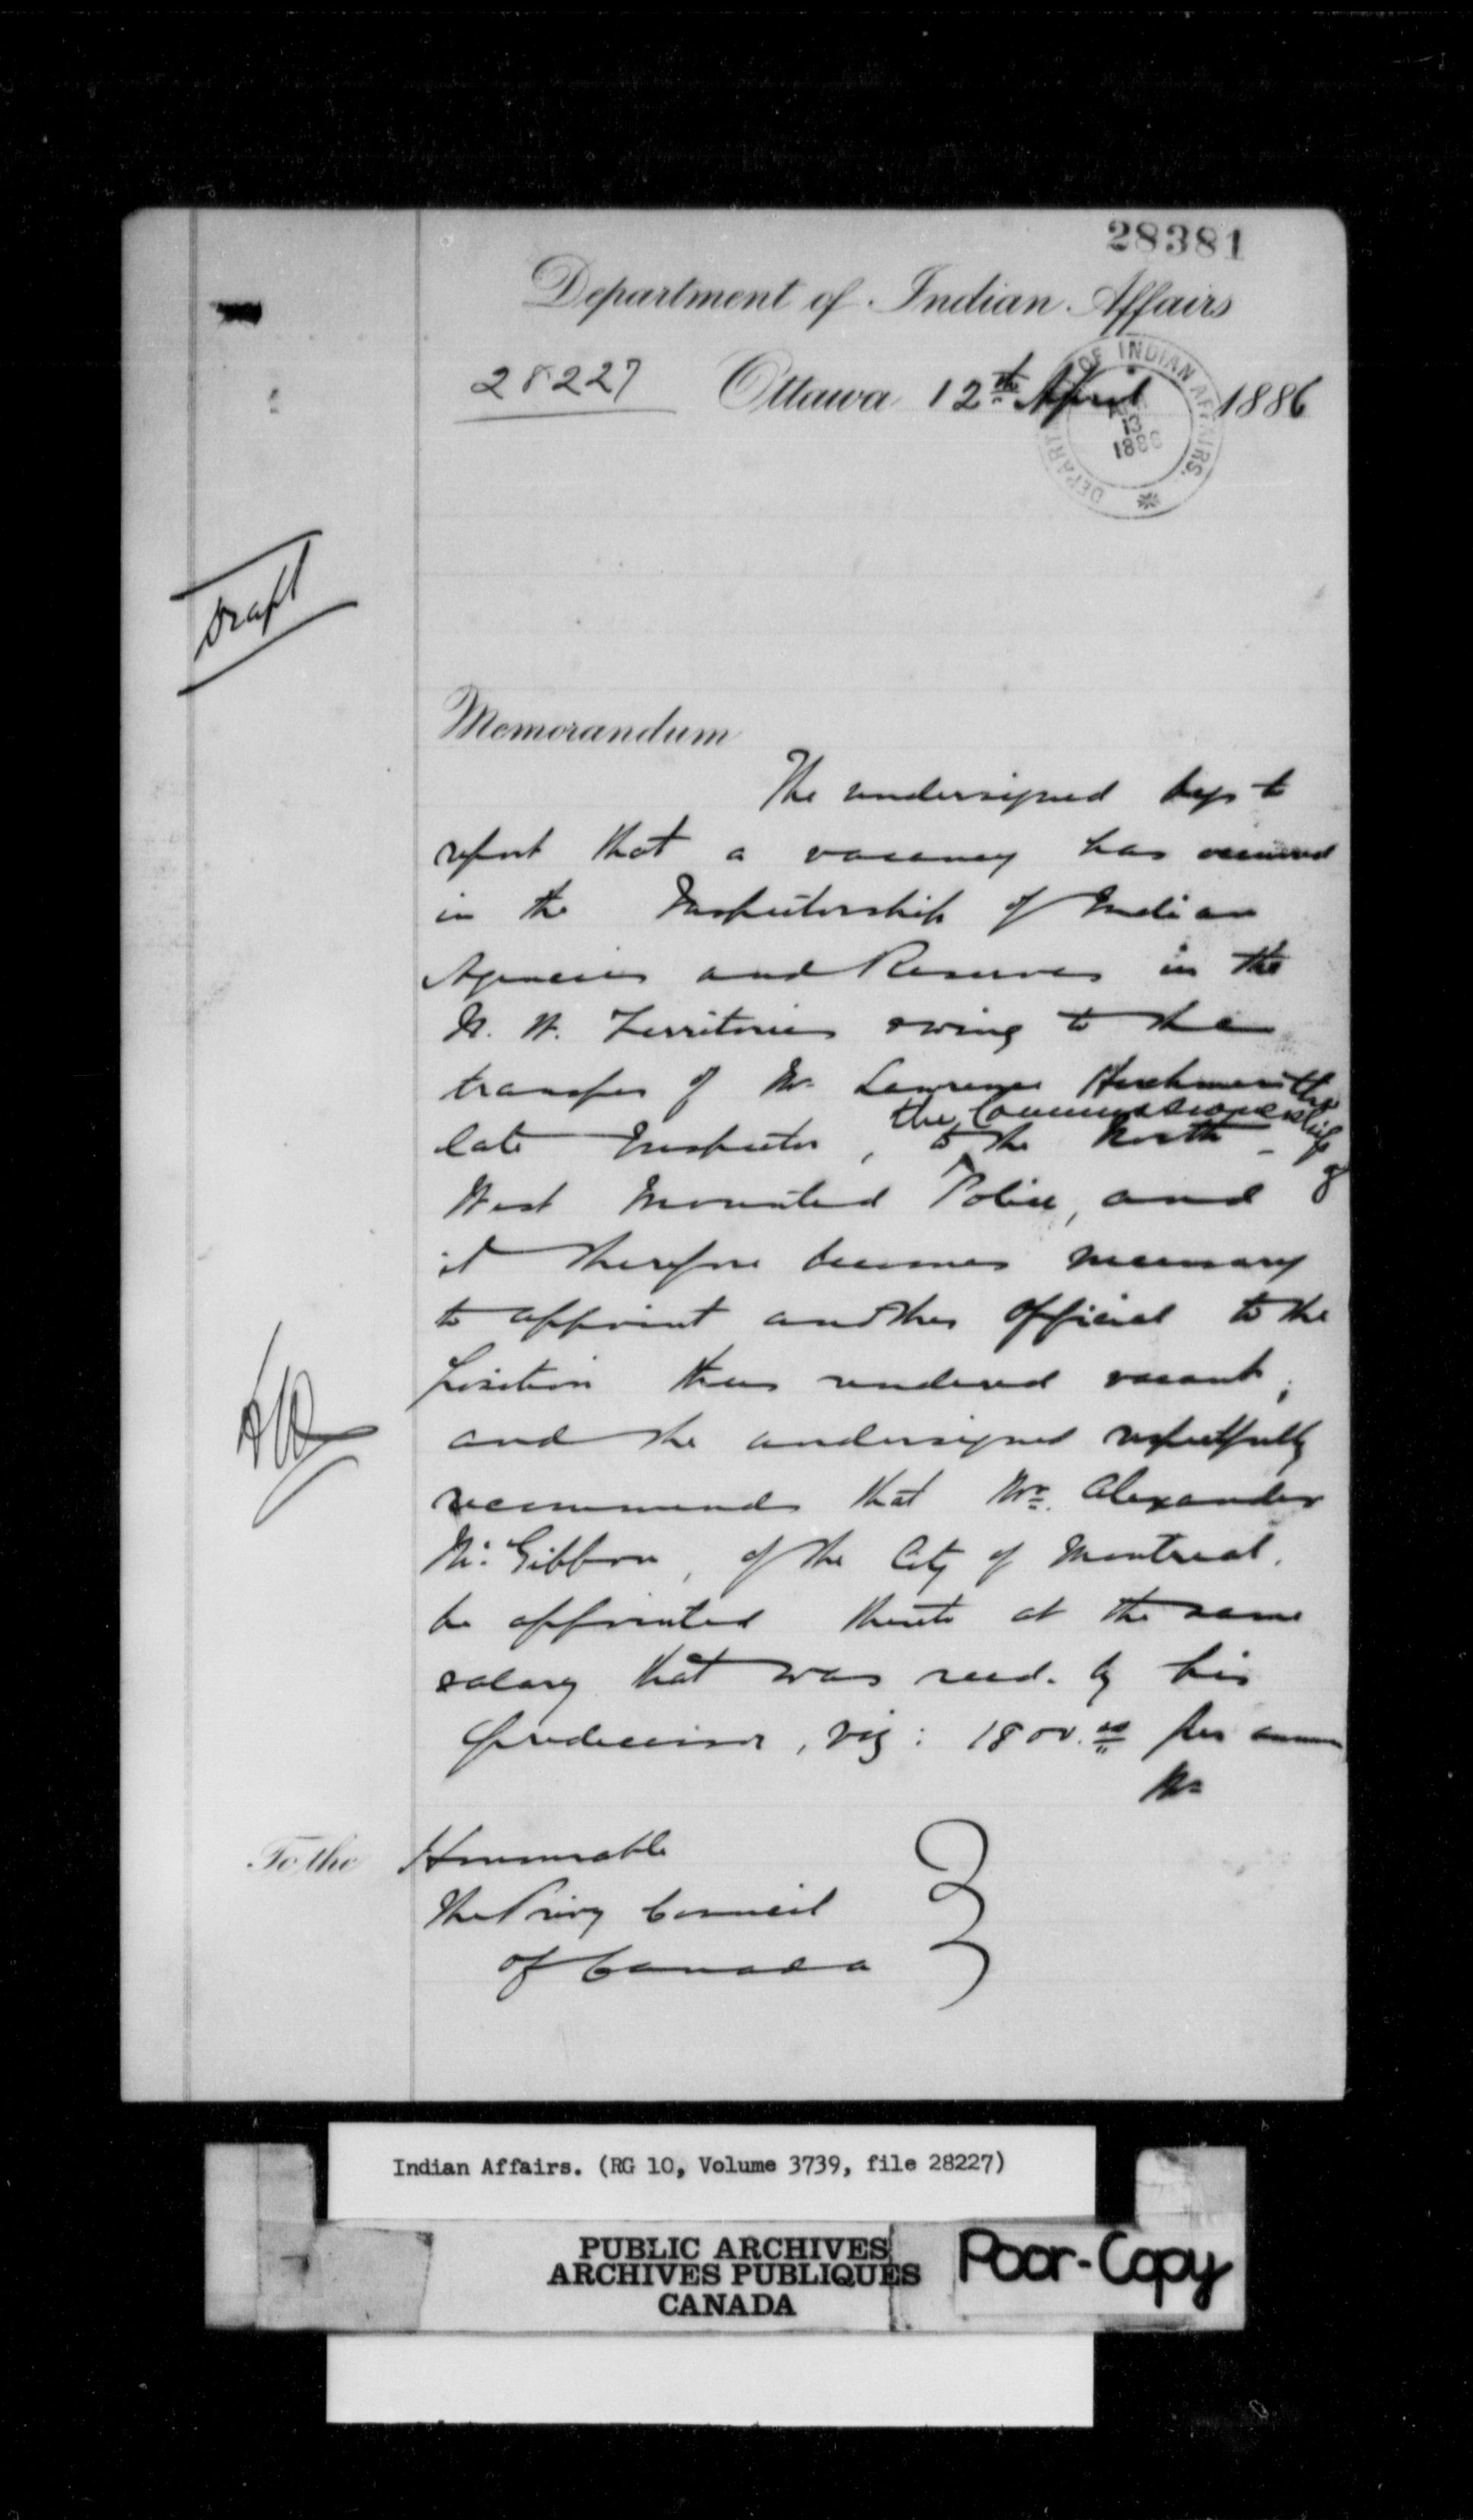 28381
Department of Indian Affairs
28227 Ottawa 12th April 1886
DEPART OF INDIAN AFFAIRS.
13
1886
Draft
Memorandum
The undersigned begs to
report that a vacancy has occurred
in the Inspectorship of Indian
Agencies and Reserves in the
N. W. Territories owing to the
transfer of Mr. Lawrence Herchmer the
the Commissionership of
late Inspector, to the North-
West Mounted Police, and
it therefore becomes necessary
to appoint another official to the
position thus rendered vacant;
and the undersigned respectfully
recommends that Mr. Alexander
McGibbon, of the City of Montreal.
be appointed thereto at the same
salary that was recd. by his
predecessor, viz: 1800.00 per annum
Mr
To the Honourable
The Privy Council
of Canada
Indian Affairs. (RG 10, Volume 3739, file 28227)
PUBLIC ARCHIVES
ARCHIVES PUBLIQUES
CANADA
Poor-Copy